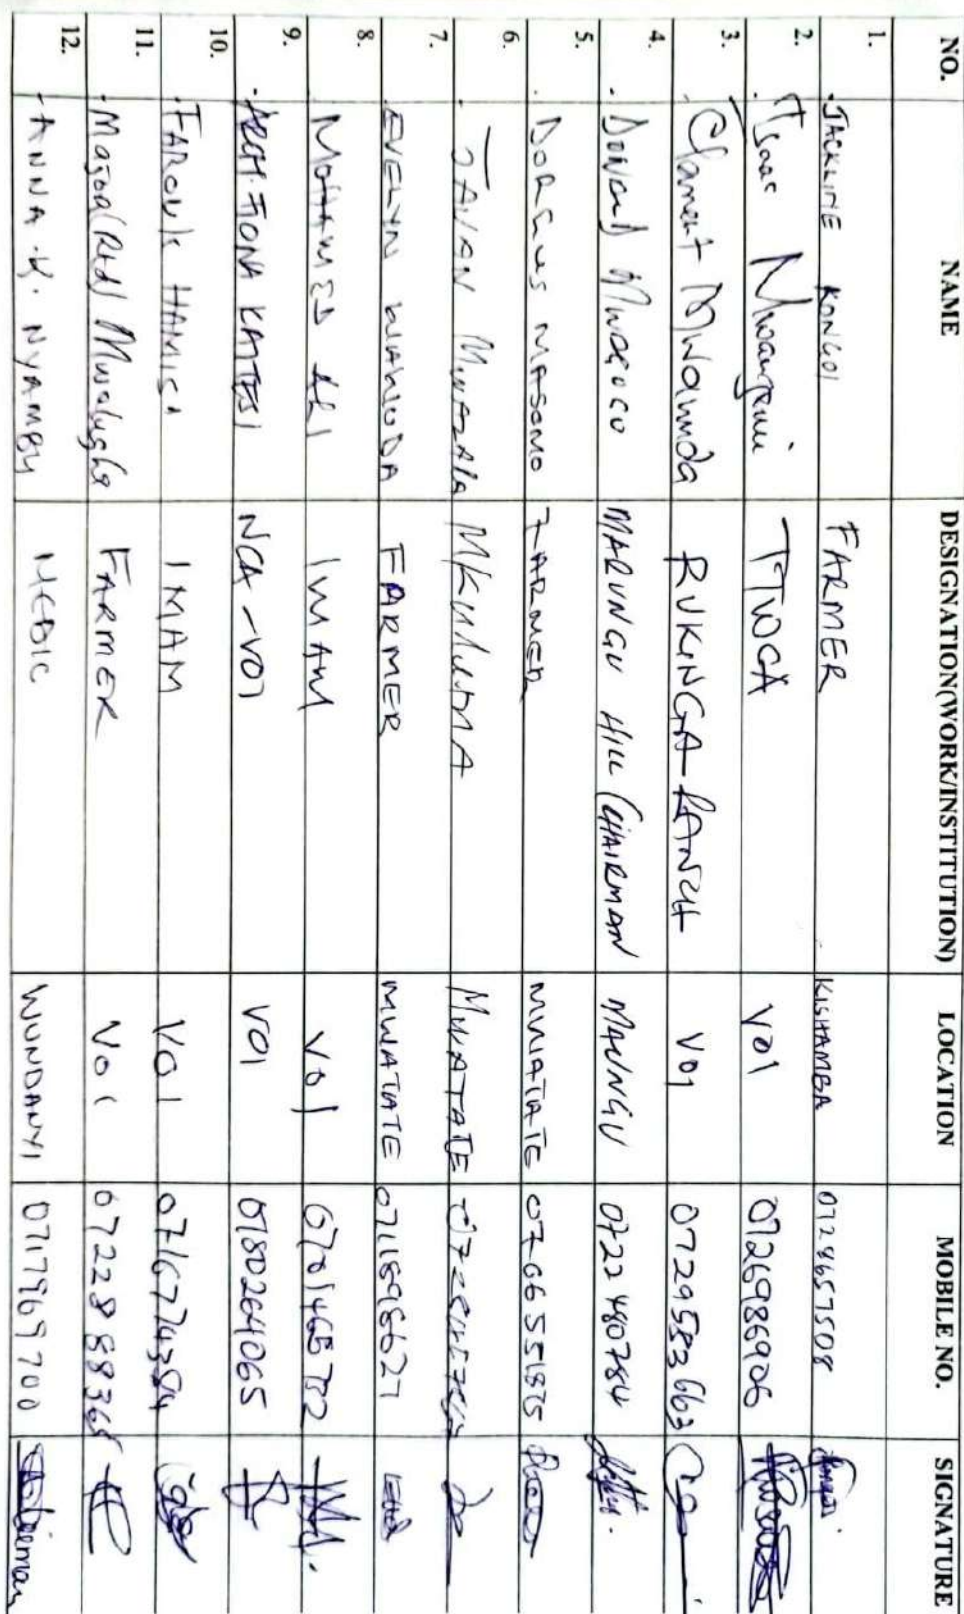 NO. NAME DESIGNATION(WORK/INSTITUTION) LOCATION MOBILE NO. SIGNATURE
1. JACKLINE KONGOI FARMER KISHAMBA 0728657508
2. Isaac Mwangemi TTWCA VOI 0726986906
3. Clement Mwamunda RUKINGA RANCH VOI 0729583663
4. Donald Mwagogo MARUNGU HILL (CHAIRMAN MAUNGU 0722480784
5. DORCUS MASOMO FARMER MWATATE
6. JAVAN MWAZALA MKULIMA MWATATE
7. EVELYN WAKUDA FARMER MWATATE 0711898627
8. MOHAMED ALI IMAM VOI
9. ARCH. FIONA KATTESI NCA-VOI VOI 0780264065
10. FAROUK HAMISI IMAM VOI 0716774384
11. Major (Rtd) Mwalugha FARMER VOI 0722888365
12. ANNA K. NYAMBU MEDIC WUNDANYI 0717969700